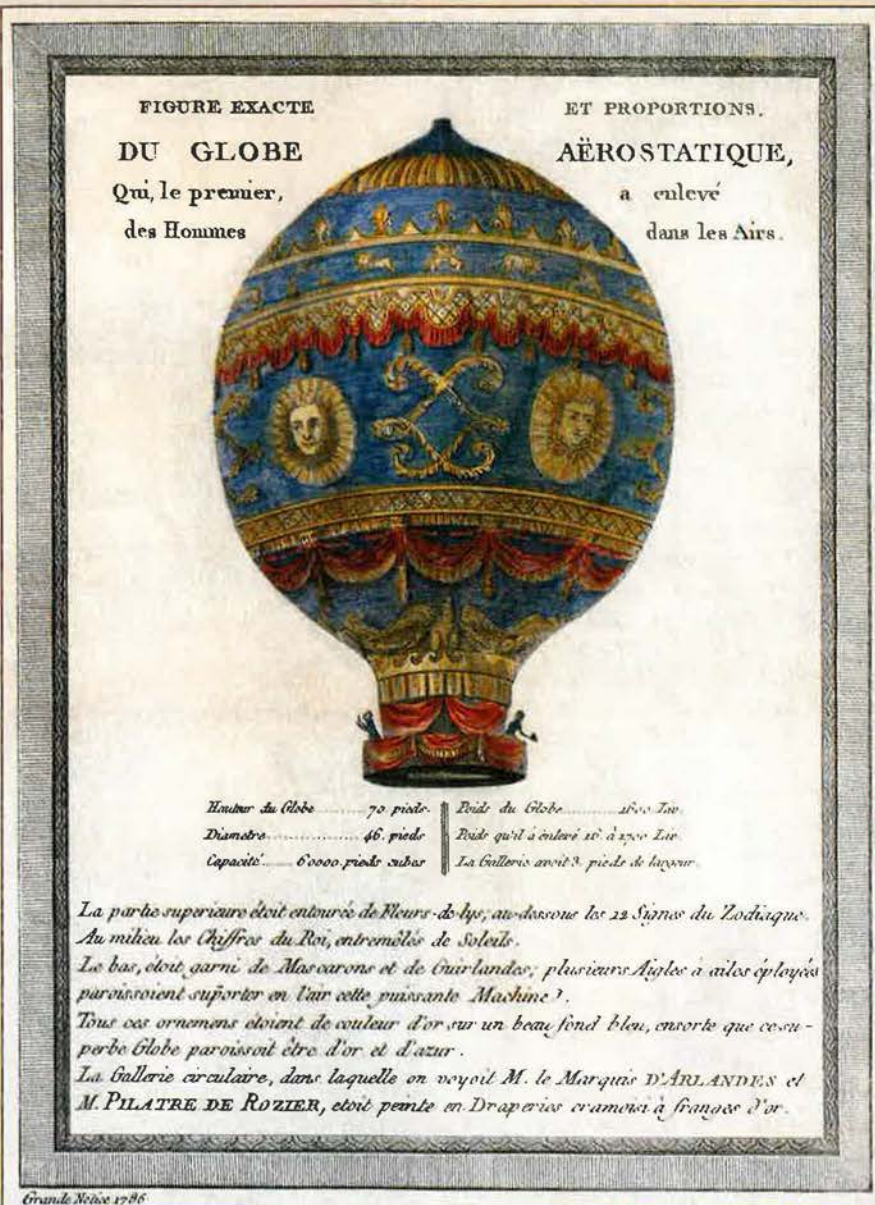 FIGURE EXACTE ET PROPORTIONS.
DU GLOBE AËROSTATIQUE,
Qui, le premier, a enlevé
des Hommes dans les Airs.
Hauteur du Globe ........ 70 pieds.
Diametre ............... 46. pieds
Capacité ...... 60000. pieds cubes
Poids du Globe ........... 1600 Liv.
Poids qu'il à enlevé 16 à 1700 Liv.
La Gallerie avoit 3. pieds de largeur.
La partie superieure étoit entourée de Fleurs-de-lys, au-dessous les 12 Signes du Zodiaque.
Au milieu les Chiffres du Roi, entremêlés de Soleils.
Le bas, étoit garni de Mascarons et de Guirlandes; plusieurs Aigles à ailes éployées
paroissoient suporter en l'air cette puissante Machine.
Tous ces ornemens étoient de couleur d'or sur un beau fond bleu, ensorte que ce su-
perbe Globe paroissoit être d'or et d'azur.
La Gallerie circulaire, dans laquelle on voyoit M. le Marquis D'ARLANDES et
M. PILATRE DE ROZIER, etoit peinte en Draperies cramoisi à franges d'or.
Grande Notice 1786